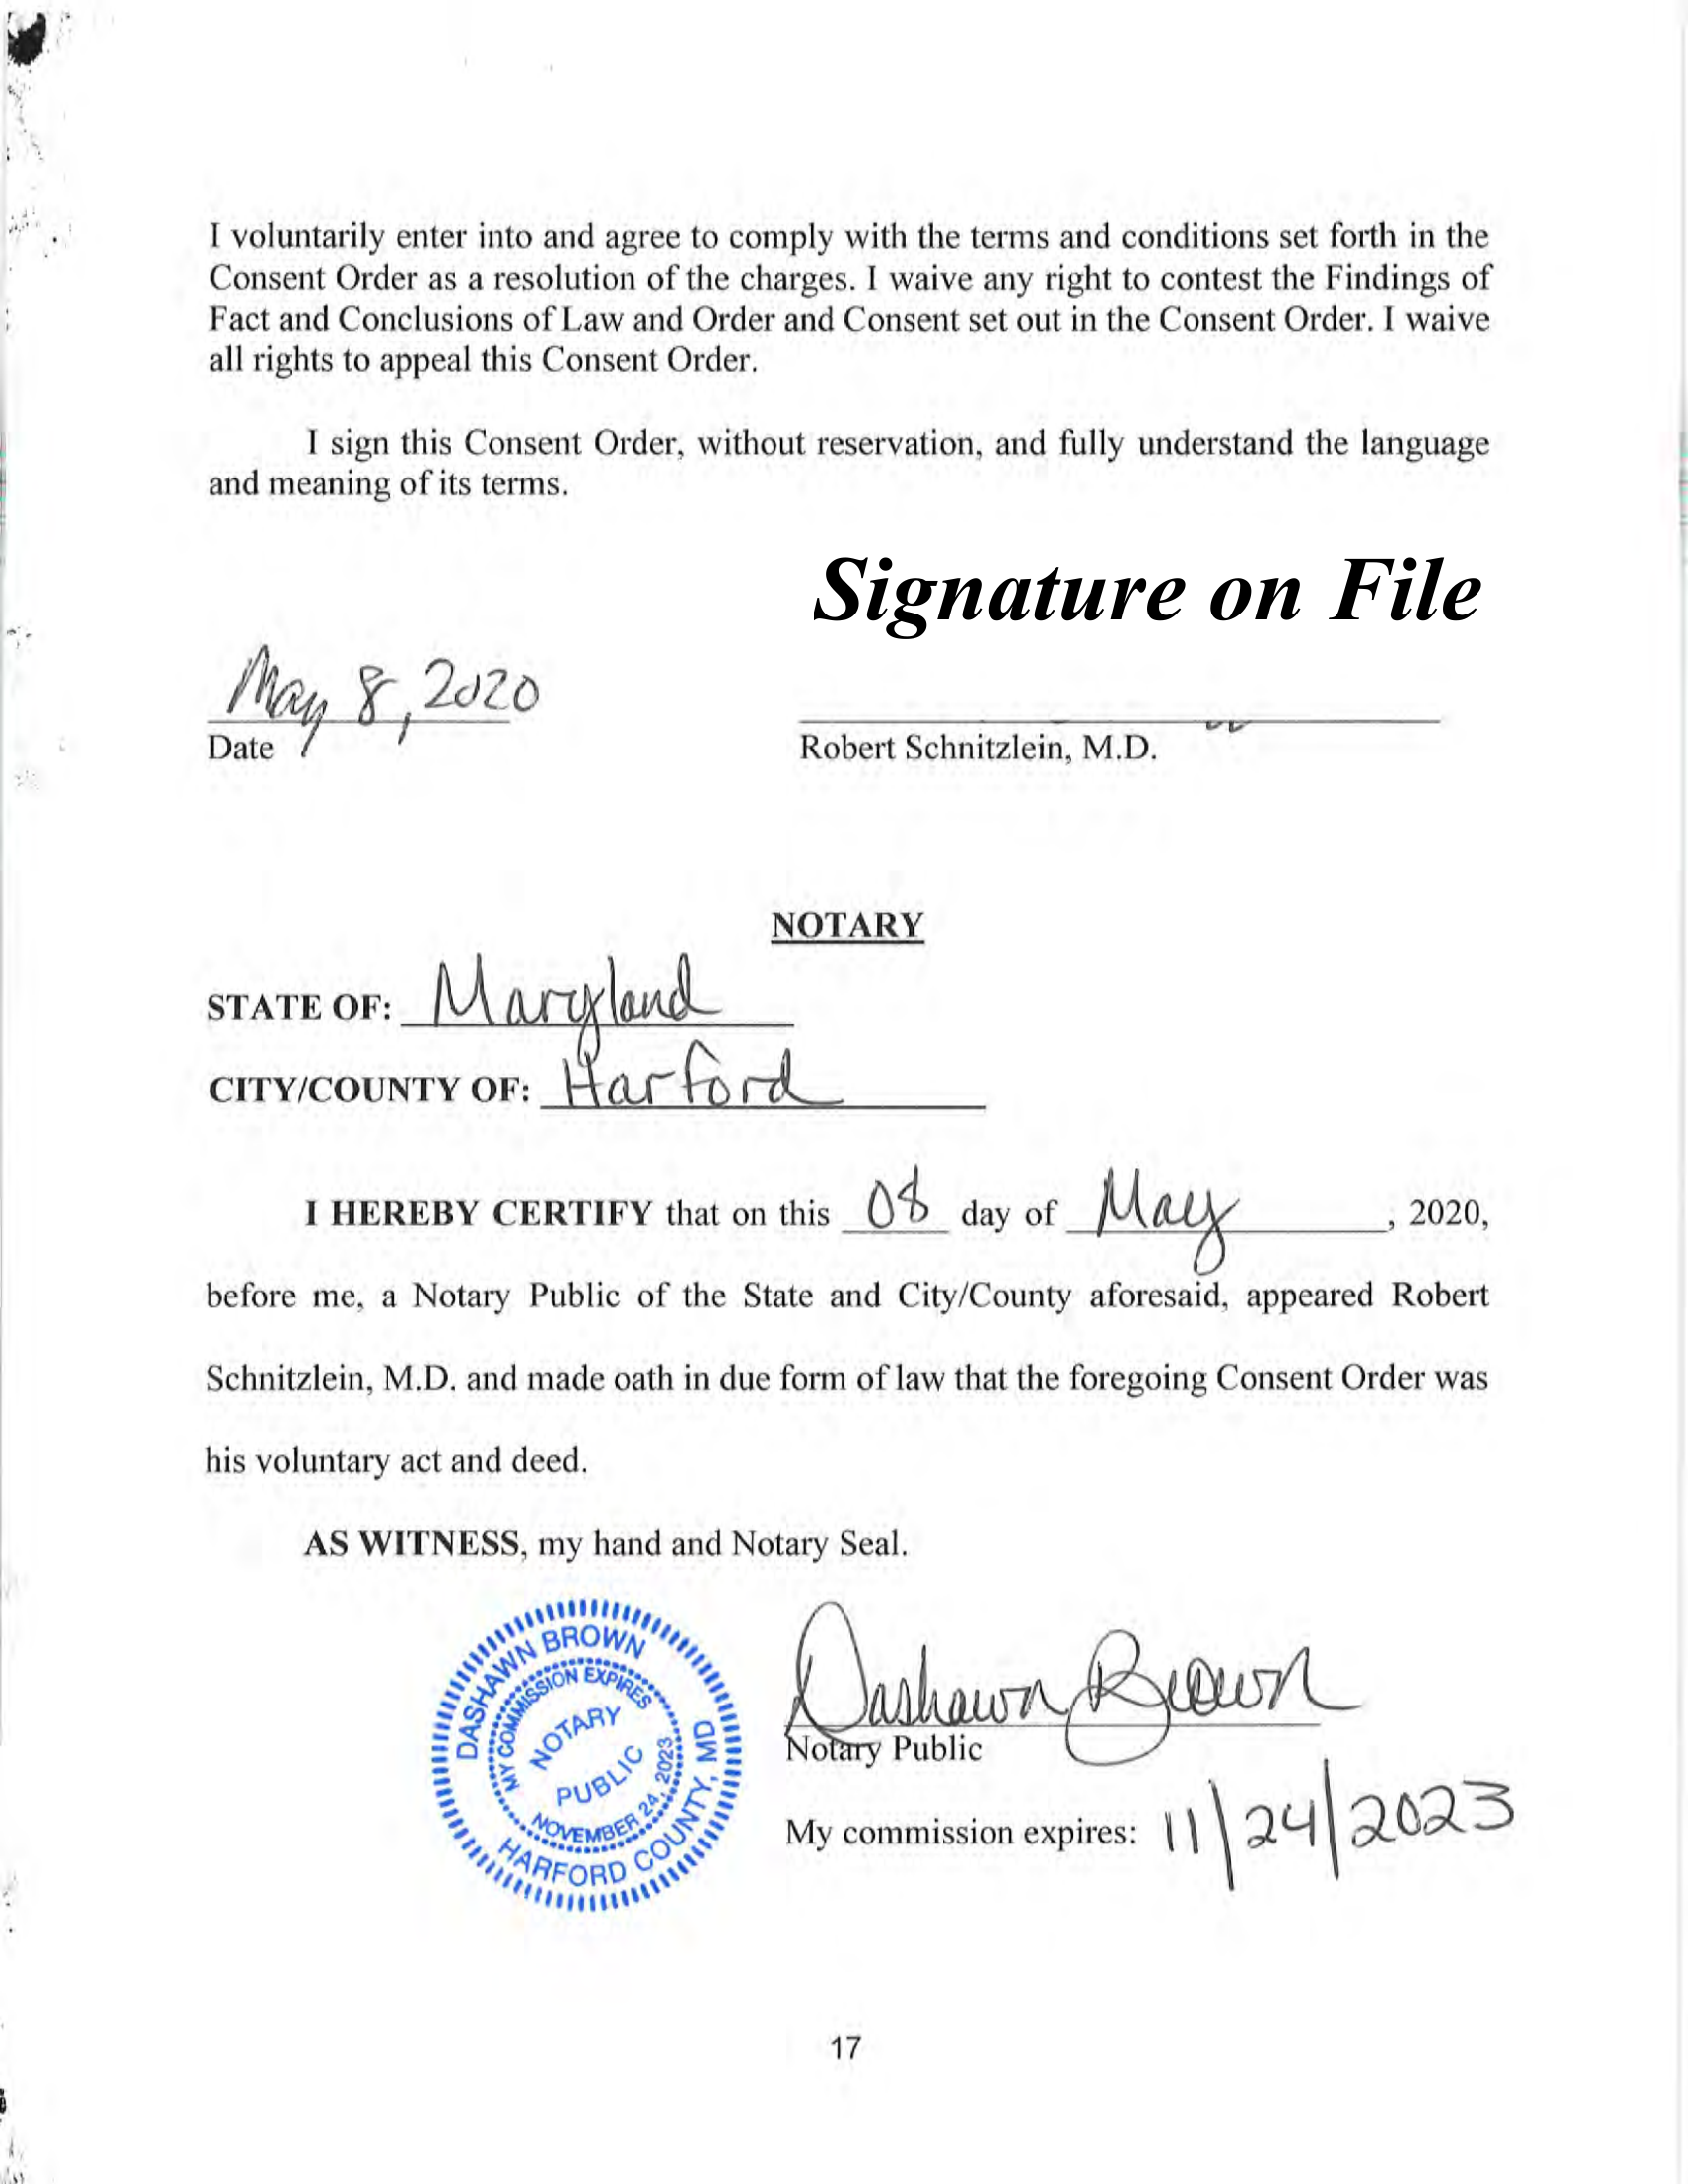 I voluntarily enter into and agree to comply with the terms and conditions set forth in the
Consent Order as a resolution of the charges. I waive any right to contest the Findings of
Fact and Conclusions of Law and Order and Consent set out in the Consent Order. I waive
all rights to appeal this Consent Order.
I sign this Consent Order, without reservation, and fully understand the language
and meaning of its terms.
Signature on File
May 8, 2020
Date
Robert Schnitzlein, M.D.
NOTARY
STATE OF: Maryland
CITY/COUNTY OF: Harford
I HEREBY CERTIFY that on this 08 day of May, 2020,
before me, a Notary Public of the State and City/County aforesaid, appeared Robert
Schnitzlein, M.D. and made oath in due form of law that the foregoing Consent Order was
his voluntary act and deed.
AS WITNESS, my hand and Notary Seal.
DASHAWN BROWN
MY COMMISSION EXPIRES
NOTARY
PUBLIC
NOVEMBER 24, 2023
HARFORD COUNTY, MD
Dashawn Brown
Notary Public
My commission expires: 11/24/2023
17